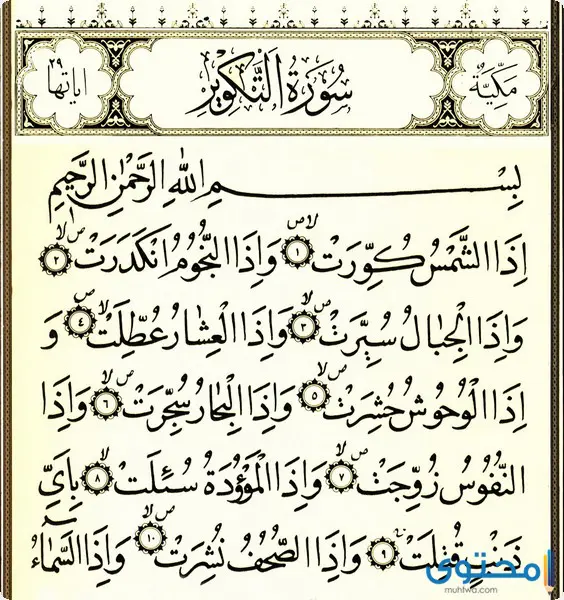 مَكِّيَّةٌ سُورَةُ التَّكْوِيرِ اٰيَاتُهَا ٢٩
بِسْمِ اللّٰهِ الرَّحْمٰنِ الرَّحِيمِ
اِذَا الشَّمْسُ كُوِّرَتْ ﴿١﴾ وَاِذَا النُّجُومُ انْكَدَرَتْ ﴿٢﴾
وَاِذَا الْجِبَالُ سُيِّرَتْ ﴿٣﴾ وَاِذَا الْعِشَارُ عُطِّلَتْ ﴿٤﴾ وَ
اِذَا الْوُحُوشُ حُشِرَتْ ﴿٥﴾ وَاِذَا الْبِحَارُ سُجِّرَتْ ﴿٦﴾ وَاِذَا
النُّفُوسُ زُوِّجَتْ ﴿٧﴾ وَاِذَا الْمَوْؤُدَةُ سُئِلَتْ ﴿٨﴾ بِاَيِّ
ذَنْبٍ قُتِلَتْ ﴿٩﴾ وَاِذَا الصُّحُفُ نُشِرَتْ ﴿١٠﴾ وَاِذَا السَّمَاءُ
محتوى
muhtwa.com